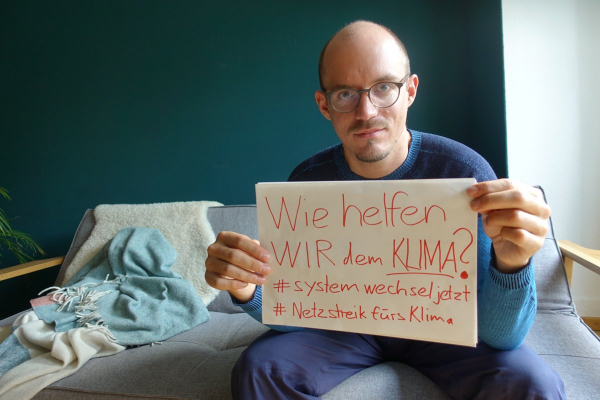 Wie helfen
WIR dem KLIMA?
#systemwechseljetzt
#Netzstreik fürs Klima